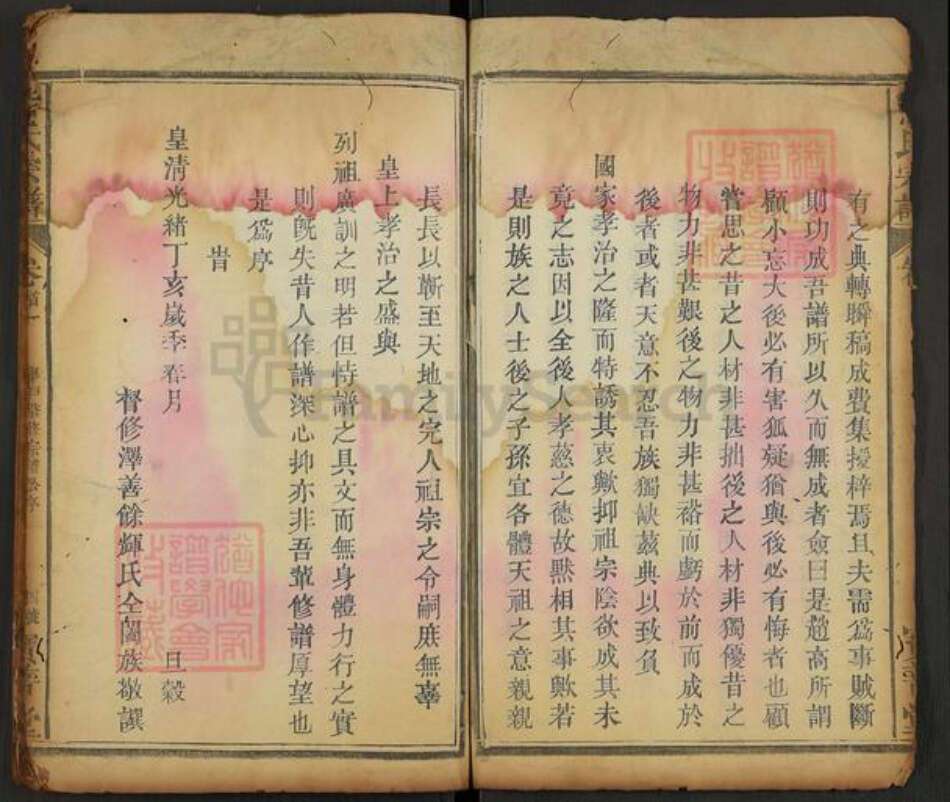 有之典轉瞬稿成費集授梓焉且夫需爲事賊斷
則功成吾譜所以久而無成者僉曰是趙高所謂
顧小忘大後必有害狐疑猶與後必有悔者也顧
嘗思之昔之人材非甚拙後之人材非獨優昔之
物力非甚艱後之物力非甚裕而虧於前而成於
後者或者天意不忍吾族獨缺茲典以致負
國家孝治之隆而特誘其衷歟抑祖宗陰欲成其未
竟之志因以全後人孝慈之德故黙相其事歟若
是則族之人士後之子孫宜各體天祖之意親親
長長以蘄至天地之完人祖宗之令嗣庶無辜
皇上孝治之盛與
列祖廣訓之明若但恃譜之具文而無身體力行之實
則旣失昔人作譜深心抑亦非吾輩修譜厚望也
是爲序
旹
皇清光緒丁亥歲季春月 旦穀
督修澤善餘輝氏仝闔族敬譔
FamilySearch